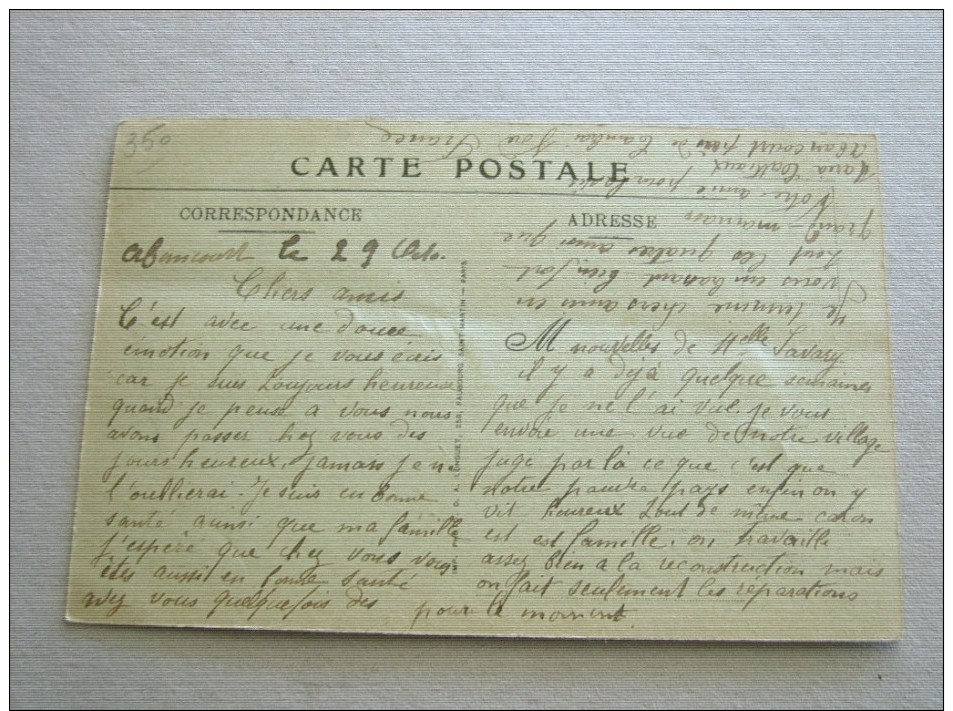 350
CARTE POSTALE
CORRESPONDANCE
ADRESSE
Abancourt le 29 Octo.
Chers amis
C'est avec une douce
émotion que je vous écris
car je suis toujours heureuse
quand je pense a vous nous
avons passer chez vous des
jours heureux, jamais je ne
l'oublierai. Je suis en bonne
santé ainsi que ma famille
j'espére que chez vous vous
êtes aussi en bonne santé
avez vous quelquefois des
nouvelles de Melle Savary
il y a dèjà quelque semaines
que je ne l'ai vue. je vous
envoie une vue de notre village
jugé par là ce que c'est que
notre pauvre pays enfin on y
vit heureux tout de même caron
est est famille. on travaille
assez bien a la reconstruction mais
on fait seulement les réparations
pour le moment.
Je termine chers amis en
vous embrassant bien fort
tout les quatres ainsi que
grand-maman
Votre amie pour la vie
Maria Cattiaux
Abancourt près de Cambrai Nord France
LONGUET, 250, FAUBOURG SAINT-MARTIN — PARIS